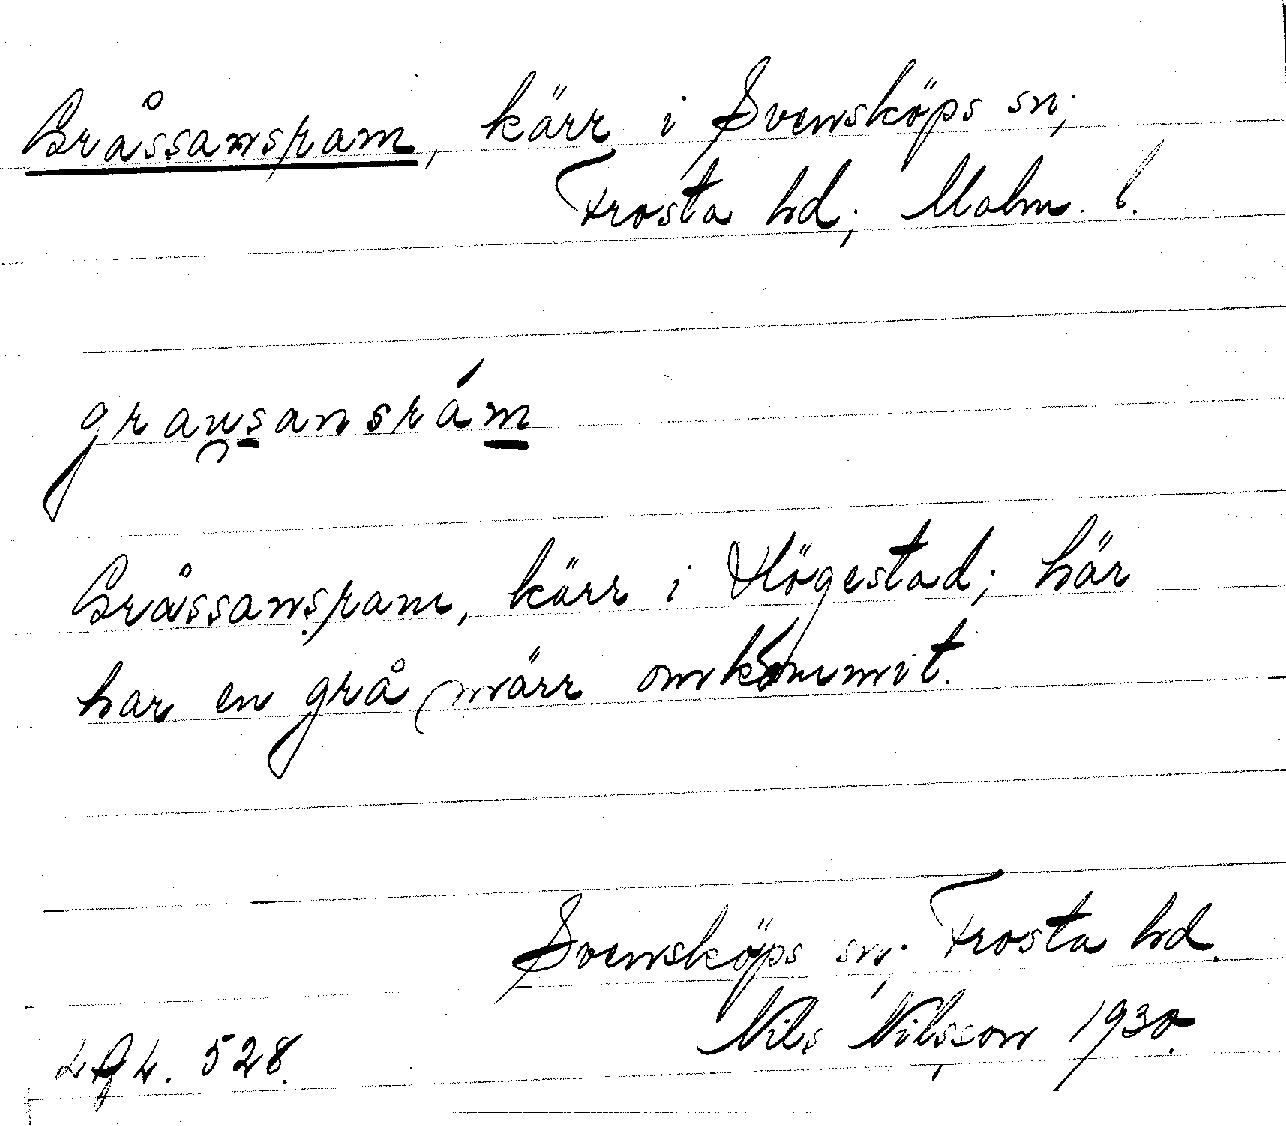 Gråssansram, kärr i Svensköps sn;
Frosta hd; Malm. l.
grausansrám
Gråssansram, kärr i Högestad; här
har en grå märr omkommit.
Svensköps sn; Frosta hd.
Nils Nilsson 1930.
528.